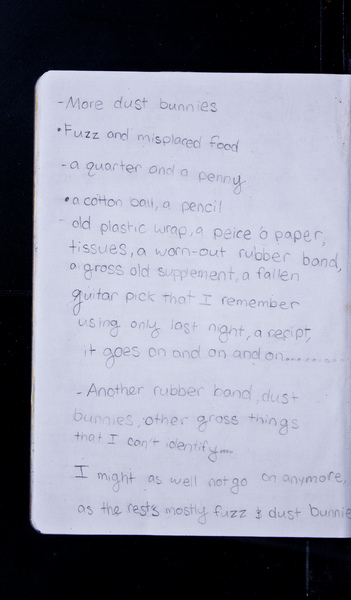 - More dust bunnies
• Fuzz and misplaced food
- a quarter and a penny
• a cotton ball, a pencil
old plastic wrap, a peice o paper,
tissues, a worn-out rubber band,
a gross old supplement, a fallen
guitar pick that I remember
using only last night, a recipt,
it goes on and on and on.........
- Another rubber band, dust
bunnies, other gross things
that I can't identify....
I might as well not go on anymore,
as the rests mostly fuzz & dust bunnie